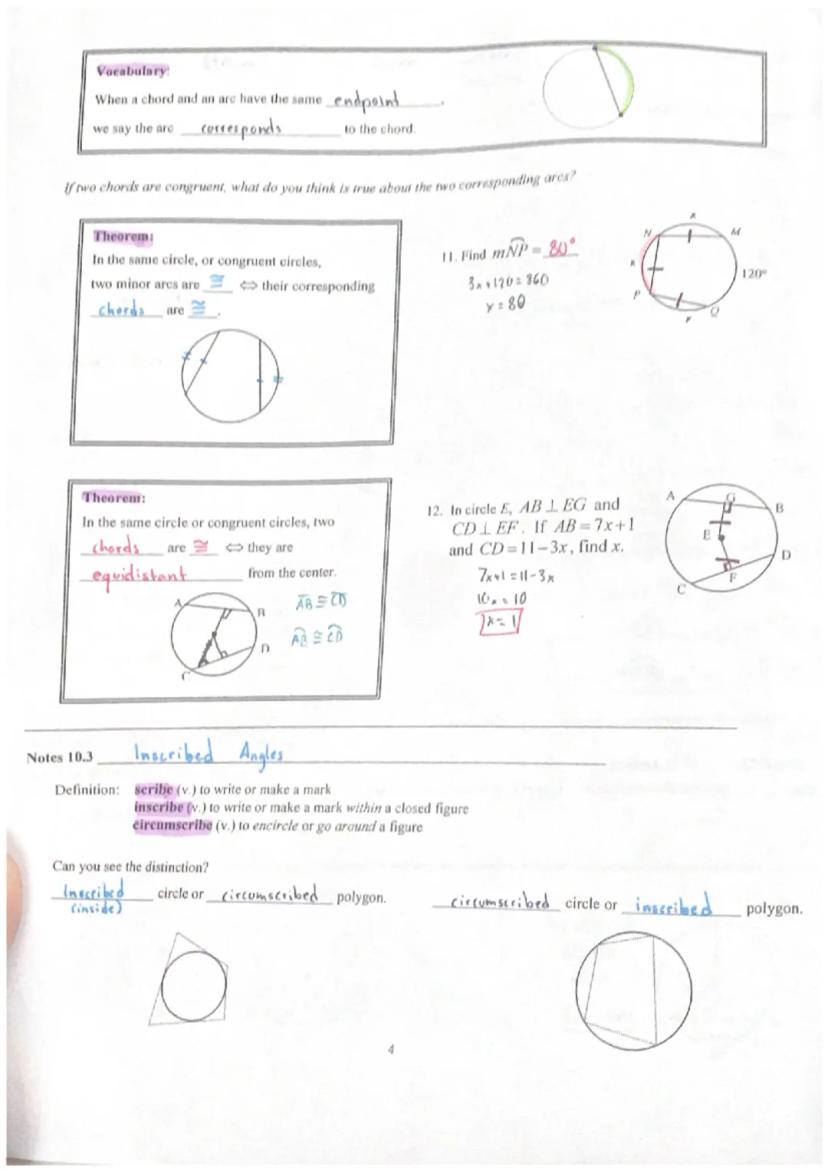 Vocabulary:
When a chord and an arc have the same endpoint,
we say the arc corresponds to the chord.
If two chords are congruent, what do you think is true about the two corresponding arcs?
Theorem:
In the same circle, or congruent circles,
two minor arcs are ≅ ⇔ their corresponding
chords are ≅.
11. Find mNP = 80°
3x+120=360
x=80
x
N
M
x
120°
P
Q
x
Theorem:
In the same circle or congruent circles, two
chords are ≅ ⇔ they are
equidistant from the center.
A
B
D
C
AB ≅ CD
AB ≅ CD
12. In circle E, AB ⊥ EG and
CD ⊥ EF. If AB = 7x+1
and CD = 11−3x, find x.
7x+1 = 11-3x
10x = 10
x=1
A
G
B
E
D
F
C
Notes 10.3 Inscribed Angles
Definition: scribe (v.) to write or make a mark
inscribe (v.) to write or make a mark within a closed figure
circumscribe (v.) to encircle or go around a figure
Can you see the distinction?
Inscribed circle or circumscribed polygon.
(inside)
circumscribed circle or inscribed polygon.
4